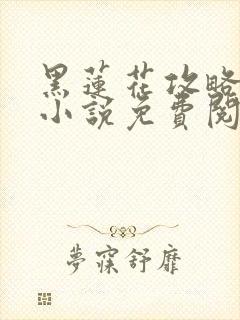 黑蓮花攻略
小說免費閱
夢寐舒靡